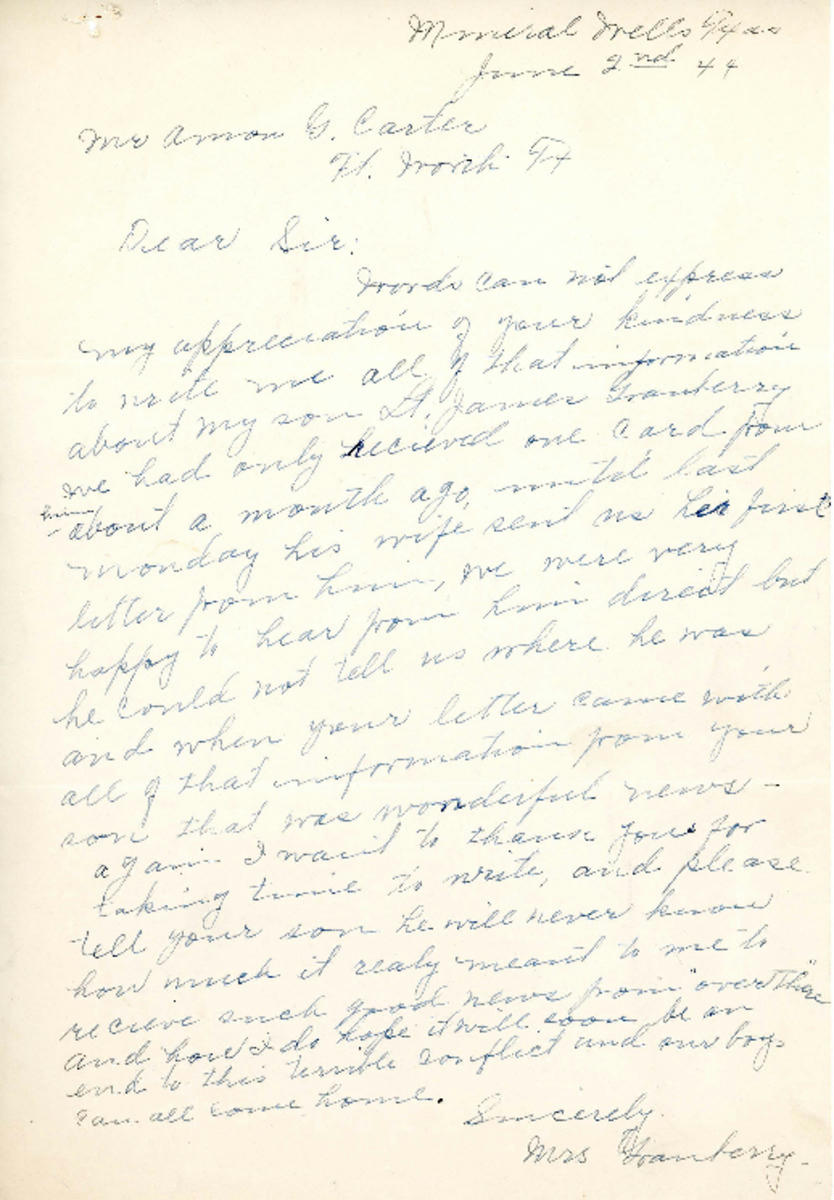 Mineral Wells Texas
June 2nd 44
Mr Amon G. Carter
Ft. Worth Tx
Dear Sir:
Words can not express
my appreciation of your kindness
to write me all of that information
about my son Lt. James Granberry
we had only recieved one card from
him
about a month ago, until last
monday his wife sent us her first
letter from him, we were very
happy to hear from him direct but
he could not tell us where he was
and when your letter came with
all of that information from your
son that was wonderful news -
again I want to thank you for
taking time to write, and please
tell your son he will never know
how much it realy meant to me to
recieve such good news from "over There"
and how I do hope it will soon be an
end to this terrible conflict and our boys
can all come home.
Sincerely.
Mrs Granberry.